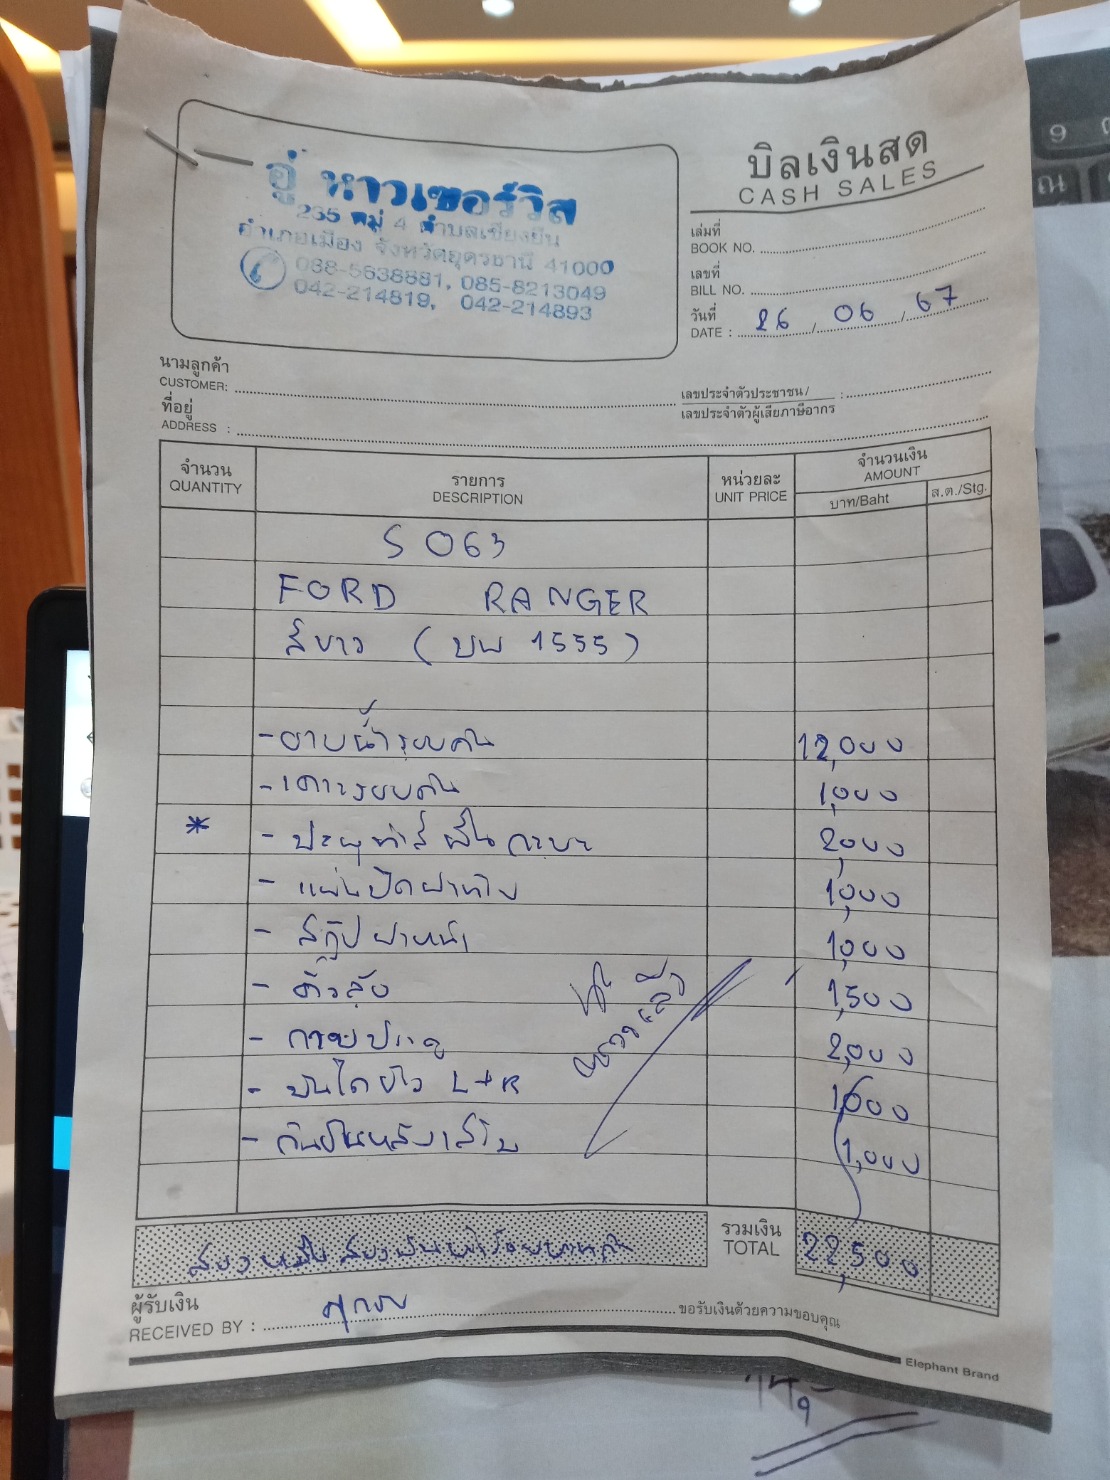 อู่ หาวเซอร์วิส
235 หมู่ 4 ตำบลเชียงยืน
อำเภอเมือง จังหวัดอุดรธานี 41000
088-5638881, 085-8213049
042-214819, 042-214893
บิลเงินสด
CASH SALES
เล่มที่
BOOK NO.
เลขที่
BILL NO.
วันที่
DATE : 26 / 06 / 67
นามลูกค้า
CUSTOMER:
เลขประจำตัวประชาชน/
เลขประจำตัวผู้เสียภาษีอากร :
ที่อยู่
ADDRESS :
จำนวน รายการ หน่วยละ จำนวนเงิน
QUANTITY DESCRIPTION UNIT PRICE AMOUNT
บาท/Baht ส.ต./Stg.
S 063
FORD RANGER
สีขาว ( บพ 1555 )
- อาบน้ำรอบคัน 12,000
- เคาะรอบคัน 1,000
* - ปะผุทำสีพื้นกระบะ 2,000
- แผ่นปิดฝาท้าย 1,000
- สกู๊ปฝาหน้า 1,000
- คิ้วล้อ 1,500
- กาบประตู 2,000
- บันไดข้าง L+R 1000
- กันชนหลังเสริม 1,000
สองหมื่นสองพันห้าร้อยบาทถ้วน
รวมเงิน
TOTAL 22,500
ผู้รับเงิน
RECEIVED BY :
ขอรับเงินด้วยความขอบคุณ
Elephant Brand